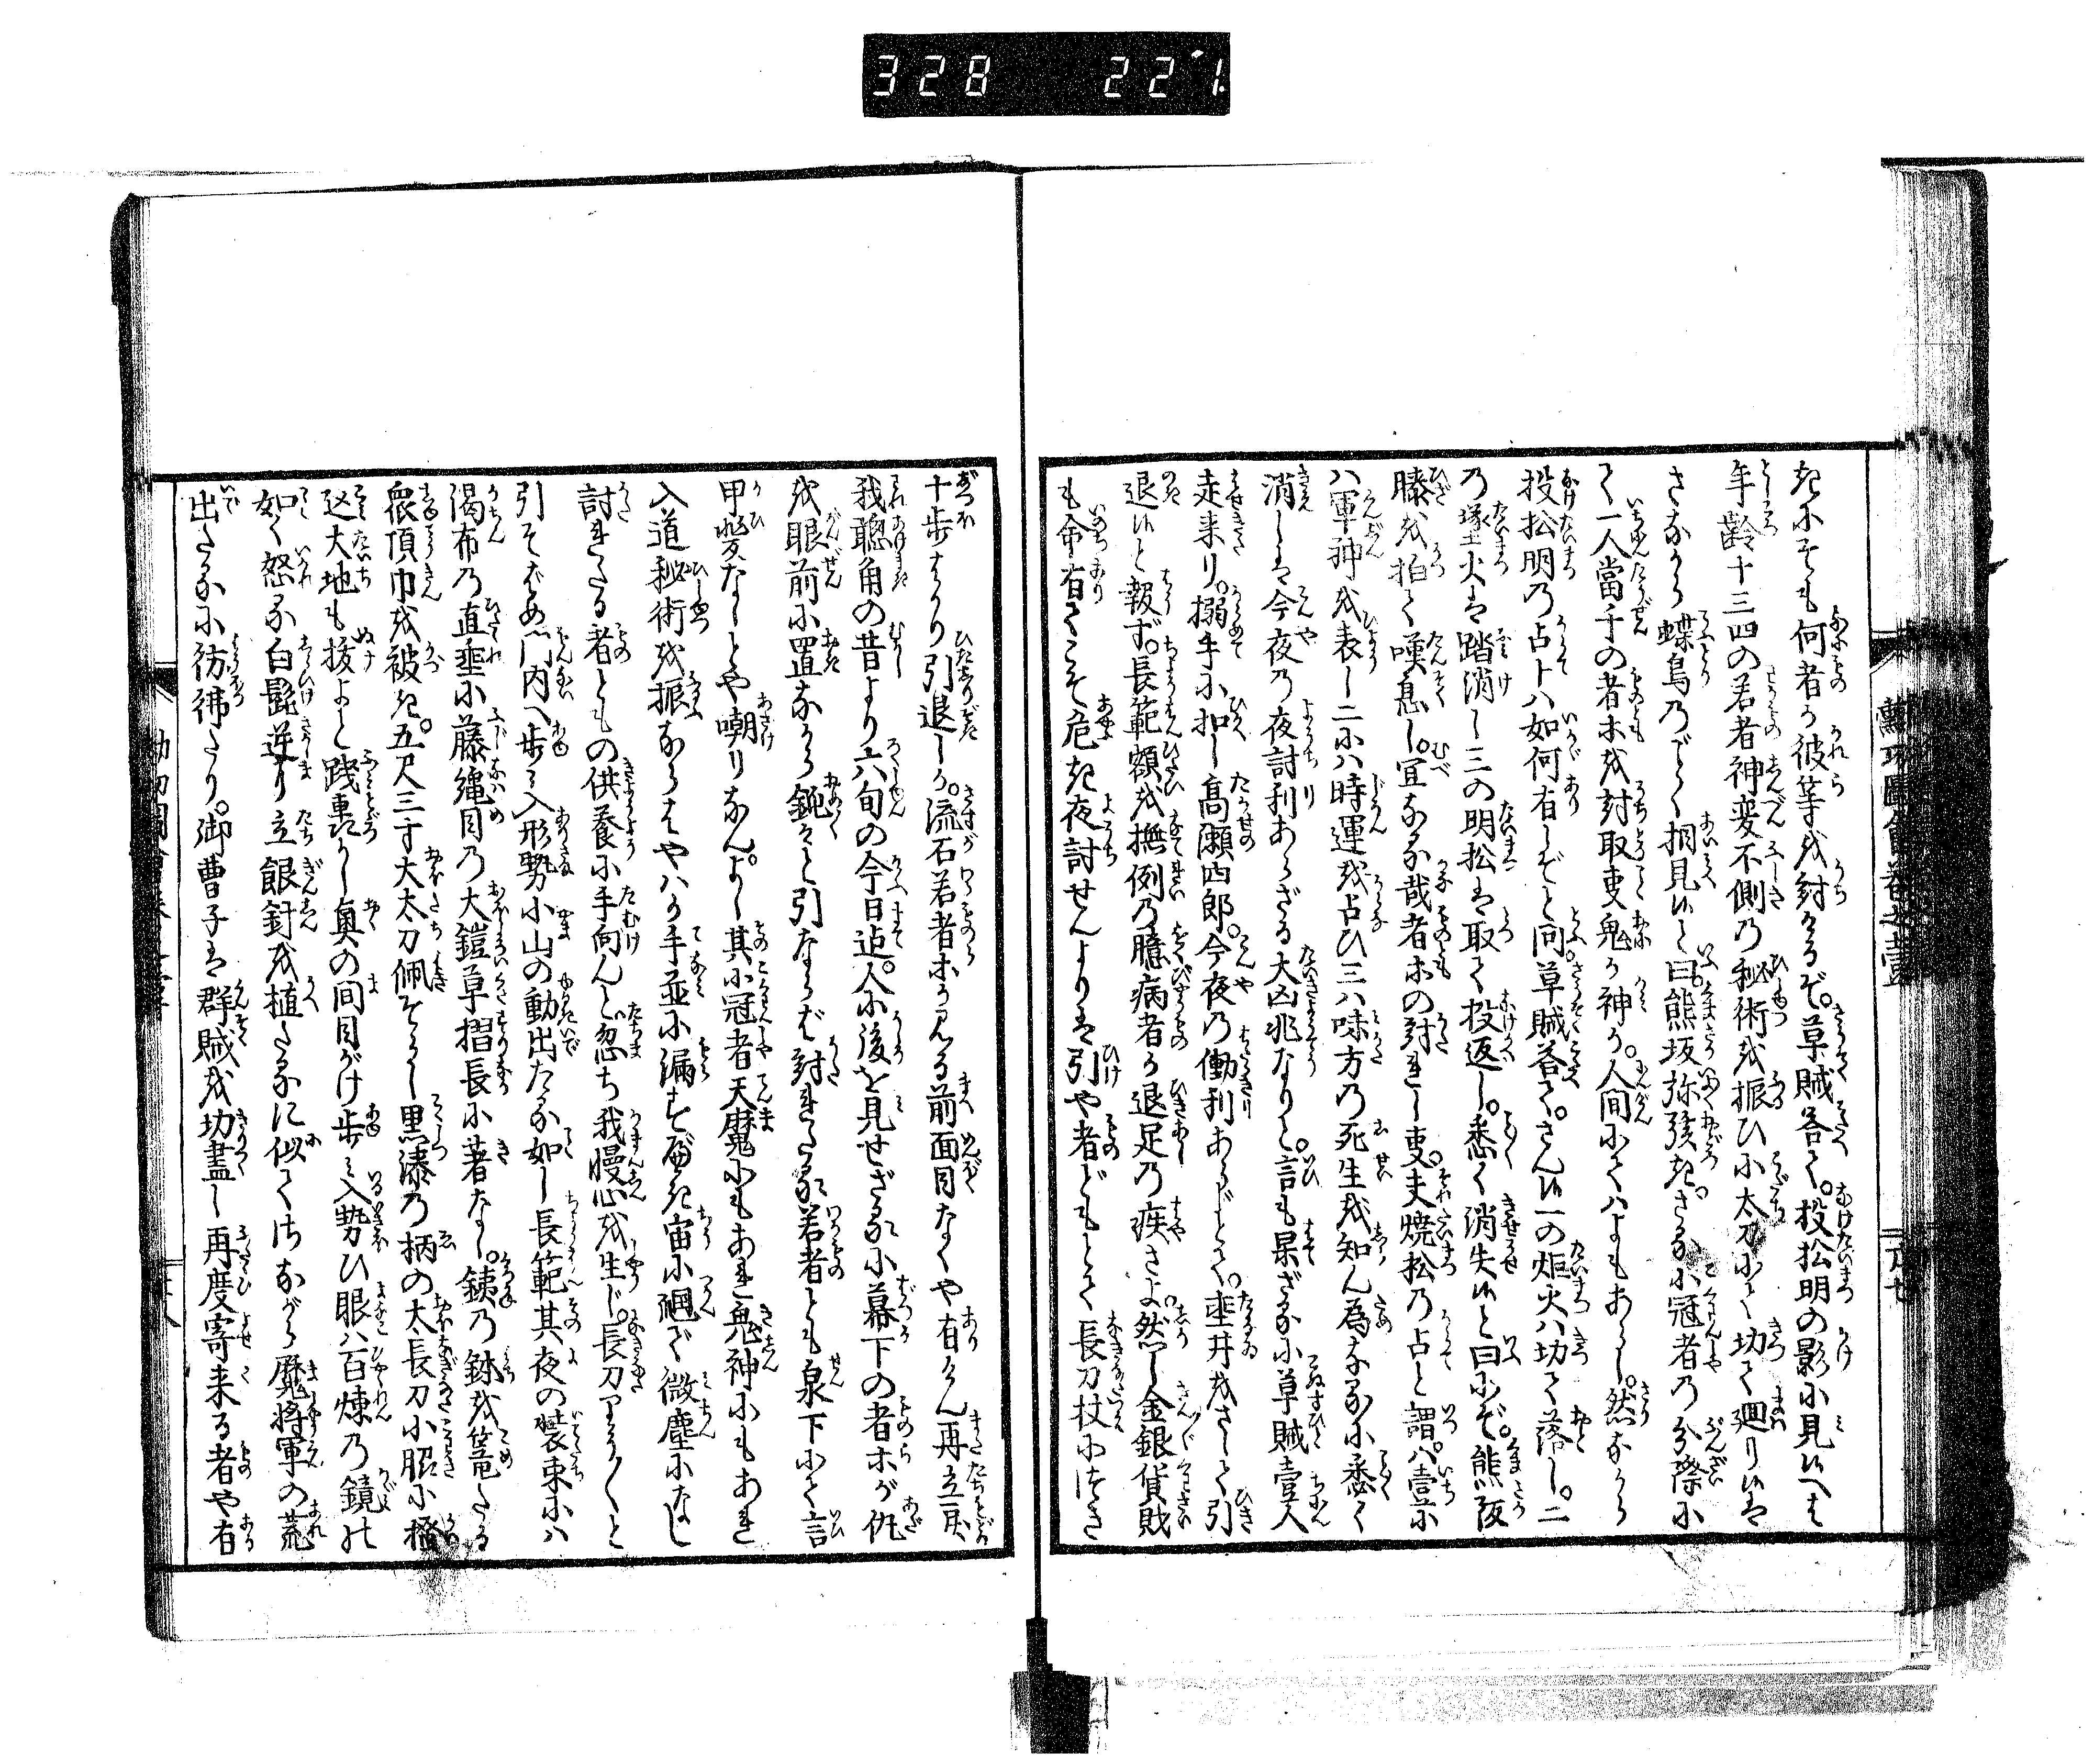 328 221
勲功圖會巻之壹
きにそも何者か彼等を討けるぞ。草賊答て。投松明の影に見候へは
年齢十三四の若者神変不側の秘術を振ひ小太刀にて切て廻り候は
さながら蝶鳥のごとく相見候と曰。熊坂弥発き。さる小冠者の分際に
て一人當千の者共を討取事鬼か神か。人間にてはよもあらじ。然ながら
投松明の占卜八如何有しぞと問。草賊答て。さん候一の炬火ハ切て落し。二
の墜火は踏消し三の明松は取て投返し。悉く消失候と曰にぞ。熊阪
膝を拍て嘆息し。宜なる哉者共の討れし事。夫焼松の占と謂ハ。壹に
ハ軍神を表し二にハ時運を占ひ三ハ味方の死生を知ん為なるに悉く
消しは今夜の夜討利あらざる大凶兆なりと。言も果ざるに草賊壹人
走来り。搦手に扣し高瀬四郎。今夜の働利あらじとて。垂井をさして引
退候と報ず。長範額を撫例の臆病者か退足の疾さよ。然し金銀貨財
も命有てこそ危き夜討せんよりは引や者どもとて長刀杖につき
十歩ばかり引退しが。流石若者共が見る前面目なくや有けん再立戻
我聰角の昔より六旬の今日迠。人に後を見せざるに幕下の者共が仇
を眼前に置ながら鈍々と引ならば討れたる若者とも泉下にて言
甲斐なしとや嘲りなん。よし其小冠者天魔にもあれ鬼神にもあれ
入道秘術を振ならはやハか手並に漏すべき宙に廻で微塵になし
討れたる者ともの供養に手向んと忽ち我慢心を生じ。長刀りうりうと
引そばめ門内へ歩み入形勢小山の動出たる如し長範其夜の装束にハ
渇布の直垂に藤縄目の大鎧草摺長に著なし。銕の鉢を篭たる
衆頂巾を被き。五尺三寸大太刀佩そらし黒漆の柄の大長刀小脇に掻
込大地も抜よと踐轟かし奥の間目がけ歩み入勢ひ眼ハ百煉の鏡の
如く怒る白髭逆り立銀針を植たるに似てさながら魔将軍の荒
出たるに彷彿たり。御曹子は群賊を切盡し再度寄来る者や有